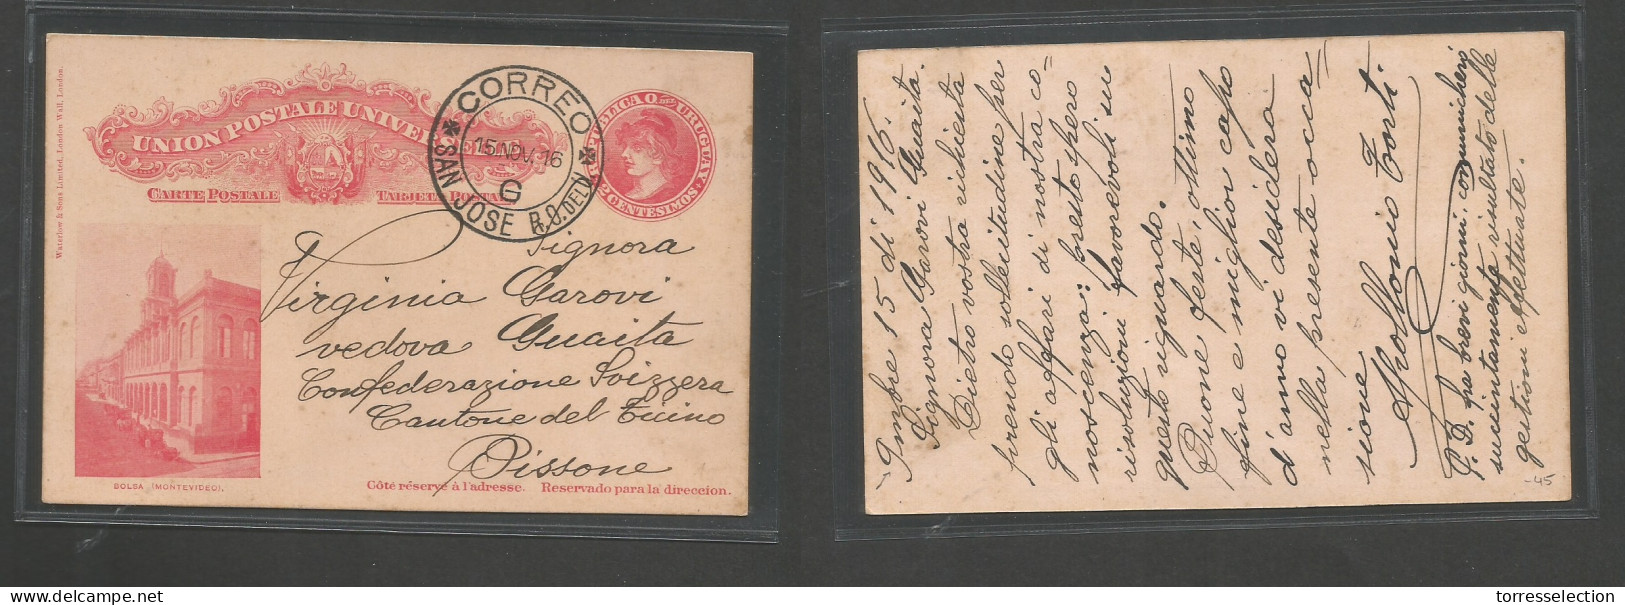 Waterlow & Sons Limited, London Wall, London.
UNION POSTALE UNIVERSELLE
CARTE POSTALE
TARJETA POSTAL
REPUBLICA O. DEL URUGUAY
2 CENTESIMOS 2
CORREO
15.NOV.16
G
SAN JOSE R.O. DEL U.
Signora
Virginia Garovi
vedova Guaita
Confederazione Svizzera
Cantone del Ticino
Bissone
BOLSA (MONTEVIDEO).
Côté réservé à l'adresse. Reservado para la direccion.
9mbre 15 di 1916.
Signora Garovi Guaita.
Dietro vostra richiesta
prendo sollecitudine per
gli affari di nostra co=
noscenza: presto spero
risoluzioni favorevoli su
questo riguardo.
Buone feste, ottimo
fine e miglior capo
d'anno vi desidera
nella presente occa=
sione
Apollonio Torti.
P. D. fra brevi giorni, comunicherò
succintamente risultato delle
gestioni effettuate.
-45
torresselection